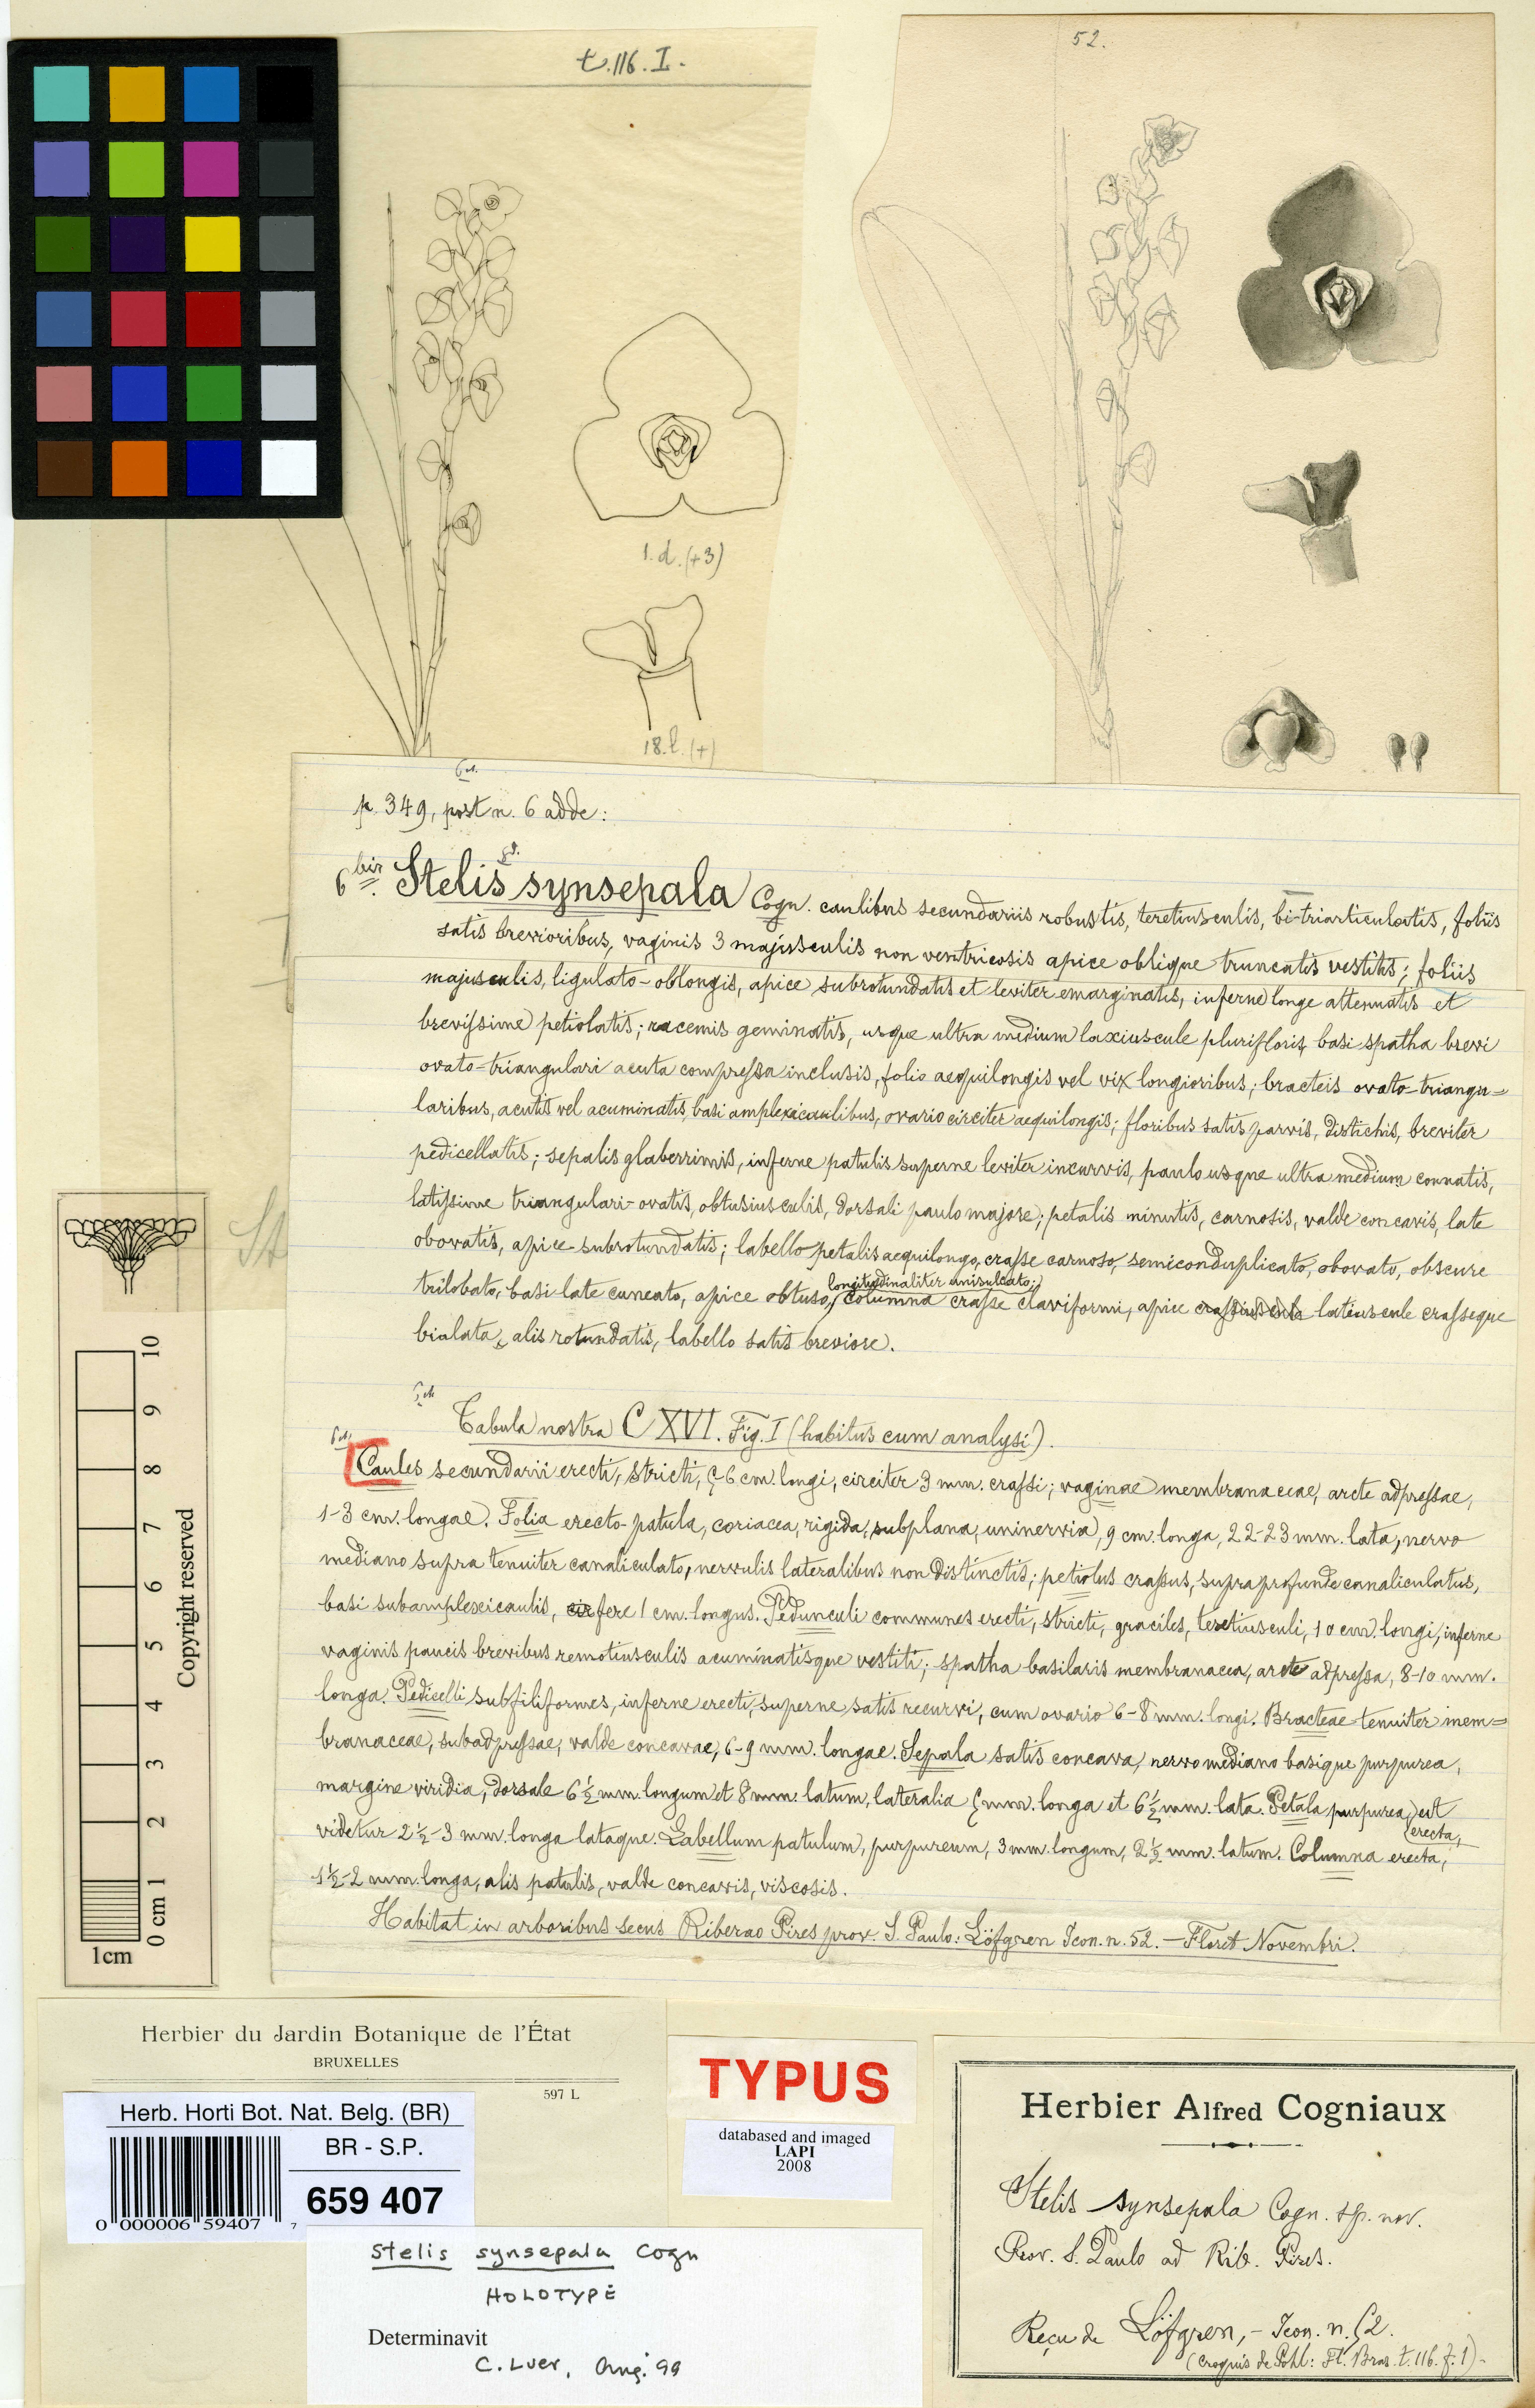 t.116.I.
52.
1.d.(+3)
18.l.(+)
p. 349, post n. 6 adde:
6 bis. Stelis synsepala Cogn. caulibus secundariis robustis, teretiusculis, bi-triarticulatis, foliis
satis brevioribus, vaginis 3 majusculis non ventricosis apice oblique truncatis vestitis; foliis
majusculis, ligulato-oblongis, apice subrotundatis et leviter emarginatis, inferne longe attenuatis et
brevissime petiolatis; racemis geminatis, usque ultra medium laxiuscule plurifloris basi spatha brevi
ovato-triangulari acuta compressa inclusis, folio aequilongis vel vix longioribus; bracteis ovato-triangu=
laribus, acutis vel acuminatis, basi amplexicaulibus, ovario circiter aequilongis; floribus satis parvis, distichis, breviter
pedicellatis; sepalis glaberrimis, inferne patulis superne leviter incurvis, paulo usque ultra medium connatis,
latissime triangulari-ovatis, obtusiusculis, dorsali paulo majore; petalis minutis, carnosis, valde concavis, late
obovatis, apice subrotundatis; labello petalis aequilongo, crasse carnoso, semiconduplicato, obovato, obscure
trilobato, basi late cuneato, apice obtuso, longitudinaliter unisulcato; columna crasse claviformi, apice latiuscule crasseque
bialata, alis rotundatis, labello satis breviore.
Tabula nostra CXVI. Fig. I (habitus cum analysi).
Caules secundarii erecti, stricti, 5-6 cm. longi, circiter 3 mm. crassi; vaginae membranaceae, arcte adpressae,
1-3 cm. longae. Folia erecto-patula, coriacea, rigida, subplana, uninervia, 9 cm. longa, 22-23 mm. lata, nervo
mediano supra tenuiter canaliculato, nervulis lateralibus non distinctis; petiolus crassus, supra profunde canaliculatus,
basi subamplexicaulis, fere 1 cm. longus. Pedunculi communes erecti, stricti, graciles, teretiusculi, 10 cm. longi, inferne
vaginis paucis brevibus remotiusculis acuminatisque vestiti; spatha basilaris membranacea, arcte adpressa, 8-10 mm.
longa. Pedicelli subfiliformes, inferne erecti, superne satis recurvi, cum ovario 6-8 mm. longi. Bracteae tenuiter mem=
branaceae, subadpressae, valde concavae, 6-9 mm. longae. Sepala satis concava, nervo mediano basique purpurea,
margine viridia, dorsale 6½ mm. longum et 8 mm. latum, lateralia 5 mm. longa et 6½ mm. lata. Petala purpurea, erecta, ut
videtur 2½-3 mm. longa lataque. Labellum patulum, purpureum, 3 mm. longum, 2½ mm. latum. Columna erecta,
1½-2 mm. longa, alis patulis, valde concavis, viscosis.
Habitat in arboribus secus Riberao Pires prov. S. Paulo: Löfgren Icon. n. 52. — Floret Novembri.
10
9
8
7
6
5
4
3
2
1
0 cm
1cm
Copyright reserved
Herbier du Jardin Botanique de l'État
BRUXELLES
597 L
Herb. Horti Bot. Nat. Belg. (BR)
BR - S.P.
659 407
0 000006 59407 7
TYPUS
databased and imaged
LAPI
2008
Stelis synsepala Cogn
HOLOTYPE
Determinavit
C. Luer, Aug. '99
Herbier Alfred Cogniaux
Stelis synsepala Cogn. sp. nov.
Prov. S. Paulo ad Rib. Pires.
Reçu de Löfgren, - Icon. n. 52.
(Croquis de Pohl: Fl. Bras. t. 116. f. 1)-